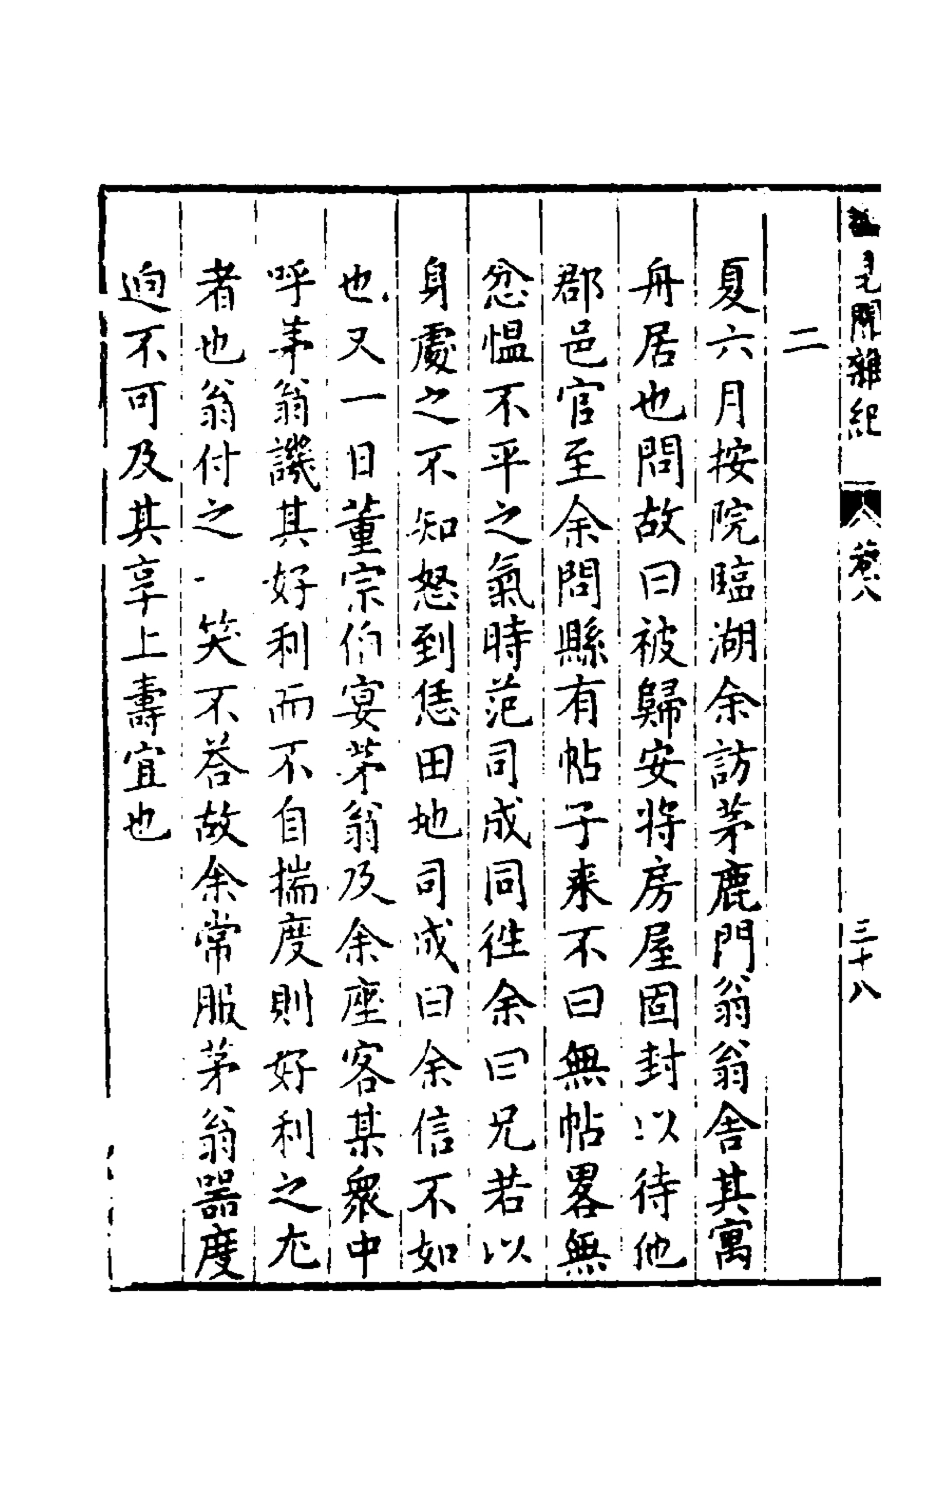 見聞雜紀
卷八
三十八
二
夏六月按院臨湖余訪茅鹿門翁翁舍其寓
舟居也問故曰被歸安將房屋固封以待他
郡邑官至余問縣有帖子來不曰無帖畧無
忿愠不平之氣時范司成同徃余曰兄若以
身處之不知怒到恁田地司成曰余信不如
也又一日董宗伯宴茅翁及余座客某衆中
呼茅翁譏其好利而不自揣度則好利之尤
者也翁付之一笑不荅故余常服茅翁器度
逈不可及其享上壽宜也